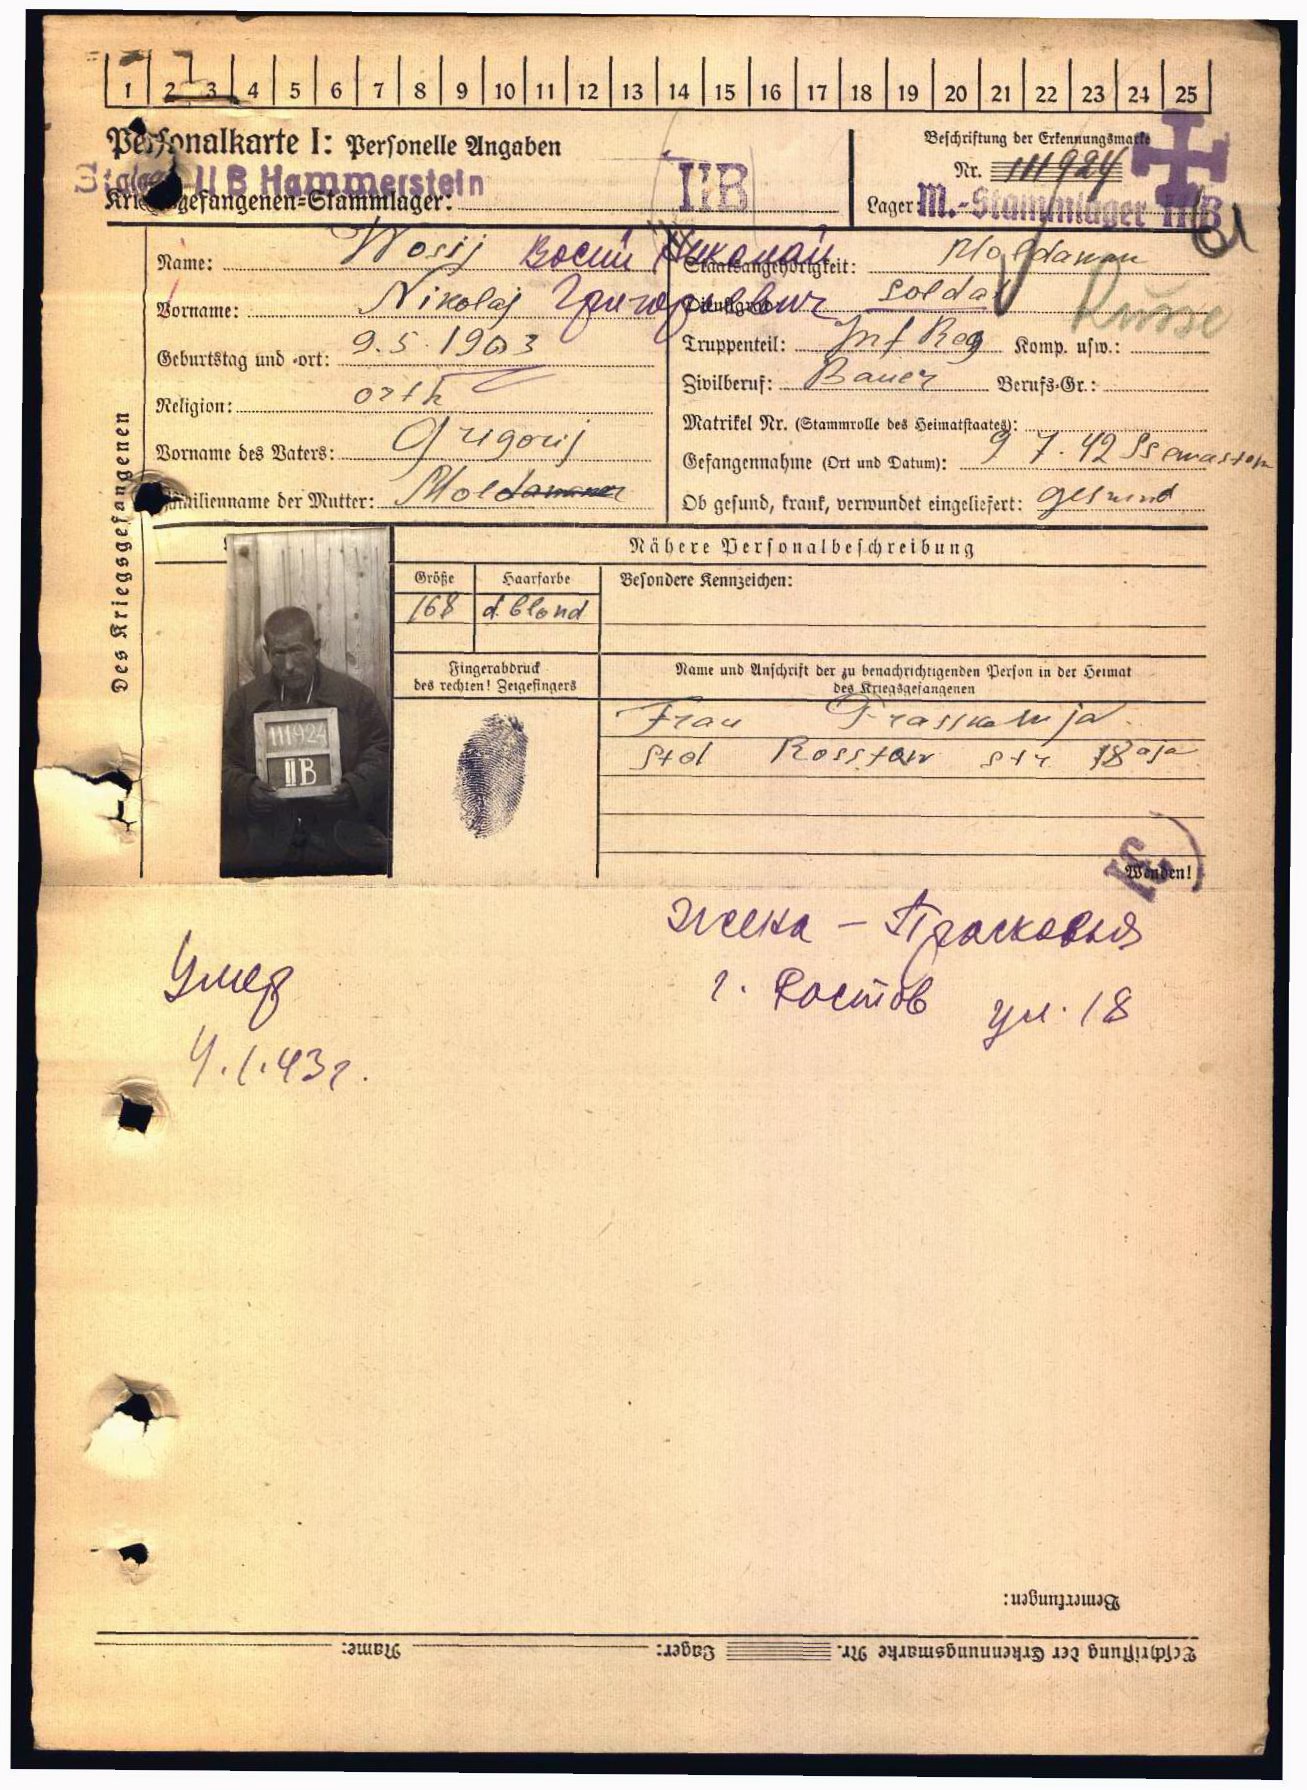 1 2 3 4 5 6 7 8 9 10 11 12 13 14 15 16 17 18 19 20 21 22 23 24 25
Personalkarte I: Personelle Angaben
Beschriftung der Erkennungsmarke
Nr. 111924
Stalag II B Hammerstein
Kriegsgefangenen-Stammlager: II B
Lager: M.-Stammlager II B
61
Des Kriegsgefangenen
Name: Wosij Восий Николай
Staatsangehörigkeit: Moldawan
Vorname: Nikolaj Григорьевич
Dienstgrad: Soldat
Russe
Geburtstag und -ort: 9.5.1903
Truppenteil: Inf Reg Komp. usw.:
Religion: orth
Zivilberuf: Bauer Berufs-Gr.:
Matrikel Nr. (Stammrolle des Heimatstaates):
Vorname des Vaters: Grigorij
Gefangennahme (Ort und Datum): 9 7. 42 Ssewastop
Familienname der Mutter:
Ob gesund, krank, verwundet eingeliefert: gesund
Nähere Personalbeschreibung
Größe Haarfarbe Besondere Kennzeichen:
168 d. blond
Fingerabdruck
des rechten! Zeigefingers
Name und Anschrift der zu benachrichtigenden Person in der Heimat
des Kriegsgefangenen
Frau Prasskowja
Std Rosstow str 18 aja
111924
II B
Wenden!
жена – Прасковья
г. Ростов ул. 18
Умер
4.1.43г.
Bemerkungen:
Beschriftung der Erkennungsmarke Nr. Lager: Name: